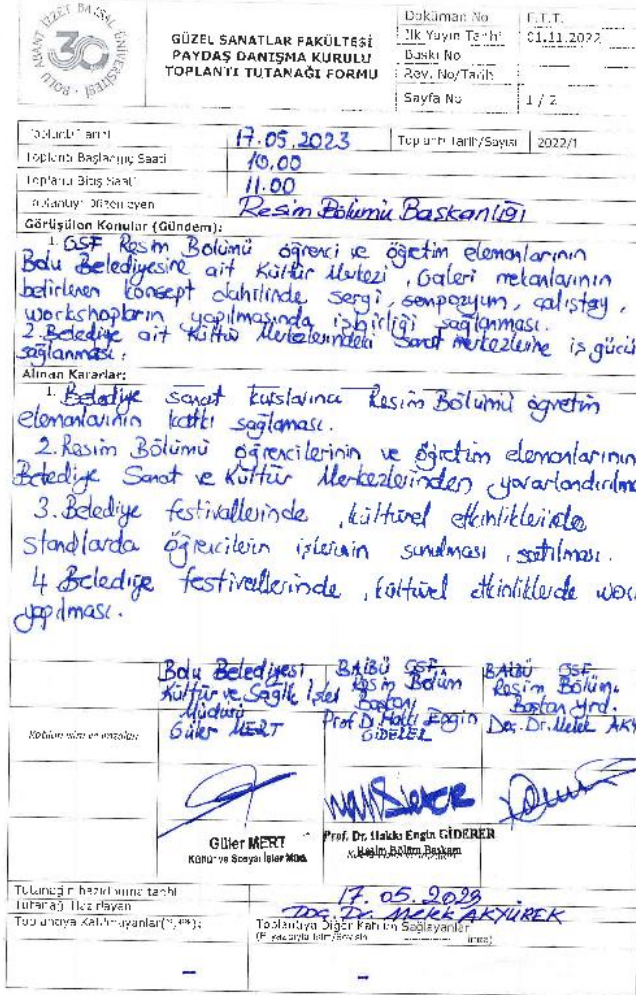 BOLU ABANT İZZET BAYSAL ÜNİVERSİTESİ
30
GÜZEL SANATLAR FAKÜLTESİ
PAYDAŞ DANIŞMA KURULU
TOPLANTI TUTANAĞI FORMU
Doküman No F.T.T.
İlk Yayın Tarihi 01.11.2022
Baskı No
Rev. No/Tarih
Sayfa No 1 / 2
Toplantı Tarihi 17.05.2023 Toplantı Tarih/Sayısı 2022/1
Toplantı Başlangıç Saati 10.00
Toplantı Bitiş Saati 11.00
Toplantıyı Düzenleyen Resim Bölümü Başkanlığı
Görüşülen Konular (Gündem):
1. GSF Resim Bölümü öğrenci ve öğretim elemanlarının
Bolu Belediyesine ait Kültür Merkezi, Galeri mekanlarının
belirlenen konsept dahilinde sergi, sempozyum, çalıştay,
workshopların yapılmasında işbirliği sağlanması.
2. Belediye ait Kültür Merkezlerindeki Sanat merkezlerine iş gücü
sağlanması.
Alınan Kararlar:
1. Belediye sanat kurslarına Resim Bölümü öğretim
elemanlarının katkı sağlaması.
2. Resim Bölümü öğrencilerinin ve öğretim elemanlarının
Belediye Sanat ve Kültür Merkezlerinden yararlandırılma
3. Belediye festivallerinde, kültürel etkinliklerinde
standlarda öğrencilerin işlerinin sunulması, satılması.
4. Belediye festivallerinde, kültürel etkinliklerde
yapılması.
Bolu Belediyesi
Kültür ve Sağlık İşler
Müdürü
Güler MERT
BAİBÜ GSF
Resim Bölüm
Başkanı
Prof. Dr. Hakkı Engin
GİDERER
BAİBÜ GSF
Resim Bölümü
Başkan Yrd.
Doç. Dr. Melek
Katılan isim ve imzaları
Güler MERT
Kültür ve Sosyal İşler Müd.
Prof. Dr. Hakkı Engin GİDERER
Resim Bölüm Başkanı
Tutanağın hazırlanma tarihi 17.05.2023
Tutanağı Hazırlayan Doç. Dr. Melek AKYÜREK
Toplantıya Katılmayanlar(*,**):
Toplantıya Diğer Katılım Sağlayanlar
-
-